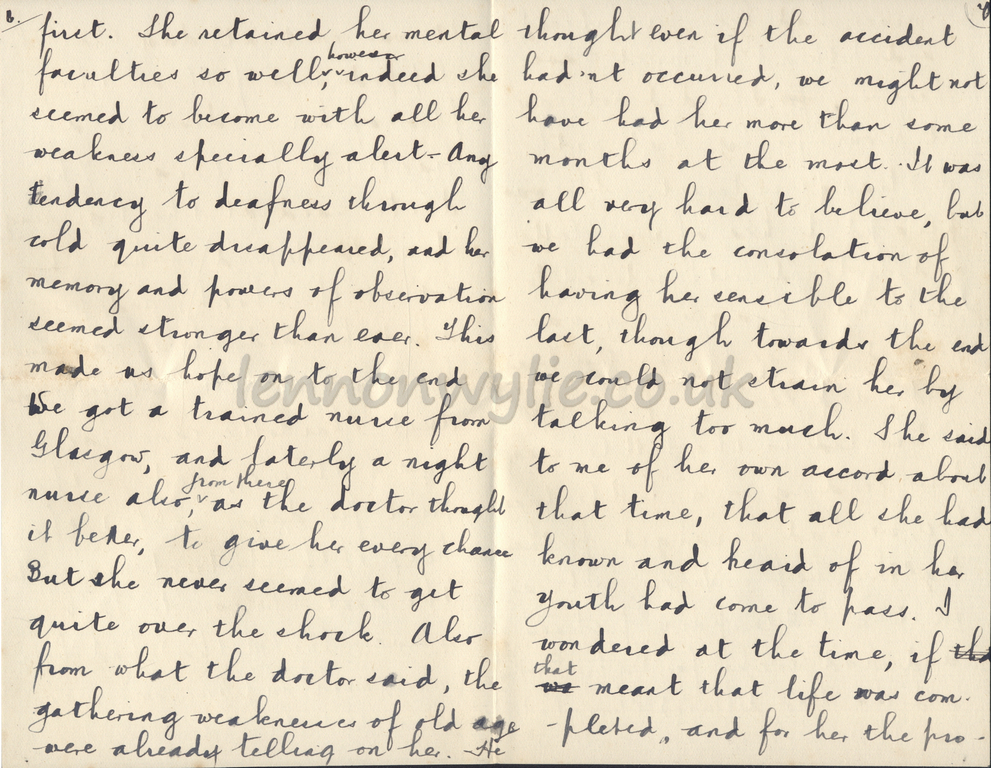 6.
first. She retained her mental
faculties so well, however, indeed she
seemed to become with all her
weakness specially alert - Any
tendency to deafness through
cold quite disappeared, and her
memory and powers of observation
seemed stronger than ever. This
made us hope on to the end
We got a trained nurse from
Glasgow, and laterly a night
nurse also, from there, as the doctor thought
it better, to give her every chance
But she never seemed to get
quite over the shock. Also
from what the doctor said, the
gathering weaknesses of old age
were already telling on her. He
thought even if the accident
had'nt occurred, we might not
have had her more than some
months at the most. It was
all very hard to believe, but
we had the consolation of
having her sensible to the
last, though towards the end
we could not strain her by
talking too much. She said
to me of her own accord about
that time, that all she had
known and heard of in her
youth had come to pass. I
wondered at the time, if tha
that we meant that life was com-
-pleted, and for her the pro-
lennonwylie.co.uk